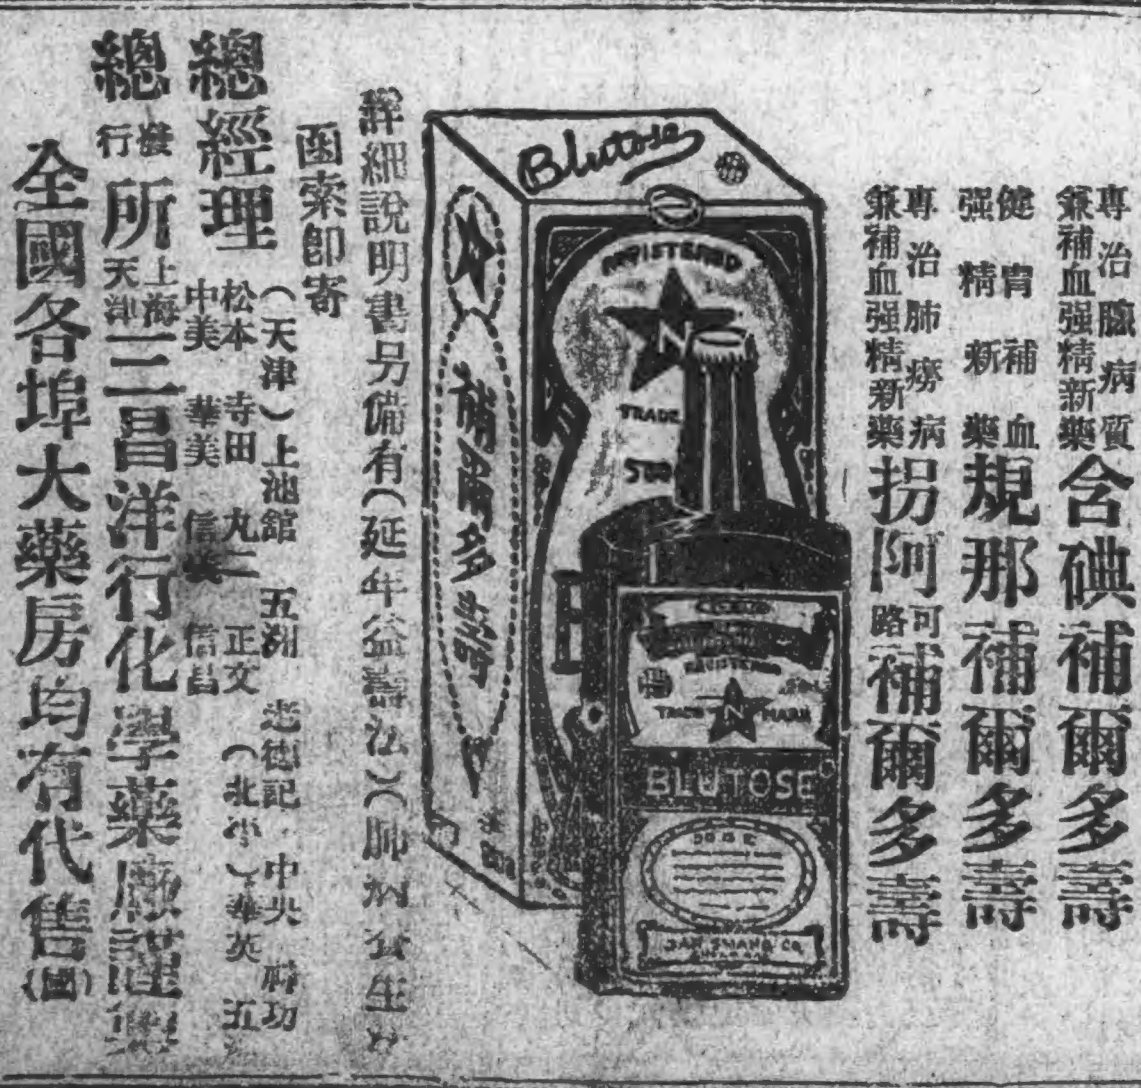 專治臟病質
兼補血强精新藥
含碘補爾多壽
健胃補血
强精新藥
規那補爾多壽
專治肺癆病
兼補血强精新藥
拐阿可路補爾多壽
Blutose
REGISTERED
N
TRADE
補爾多壽
REGISTERED
TRADE N MARK
BLUTOSE
DOSE
SAN SHANG CO
詳細說明書另備有(延年益壽法)(肺病養生
函索卽寄
總經理
(天津)上池館 五洲 老德記 中央 壽功
松本 寺田 丸二 正文 (北平)華英 五
中美 華美 信義 信昌
總發行所
上海
天津
三昌洋行化學藥廠謹
全國各埠大藥房均有代售(國)